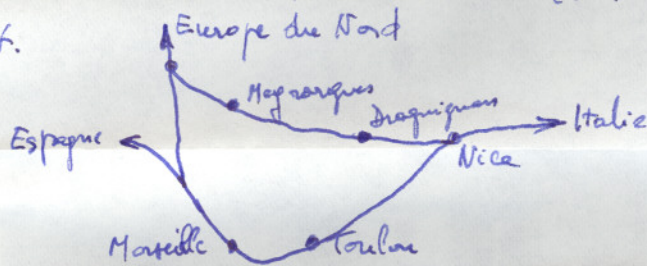 Europe du Nord
Meyrargues
Draguignan
Italie
Espagne
Nice
Marseille
Toulon